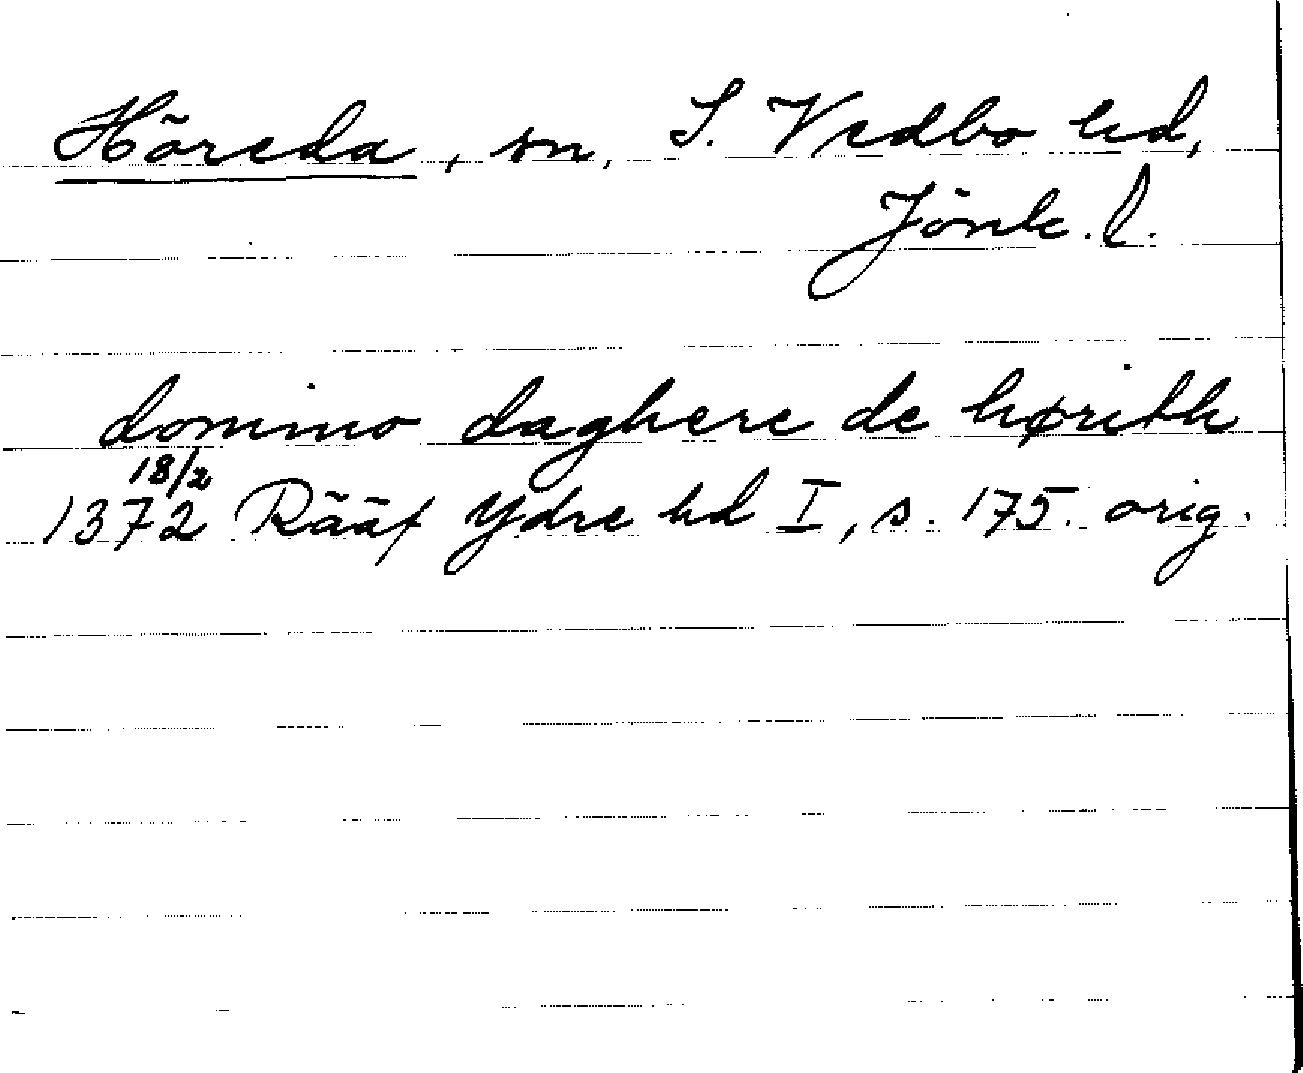 Höreda, sn, S. Vedbo hd,
Jönk. l.
domino daghere de hørith
18/2
1372 Rääf Ydre hd I, s. 175. orig.